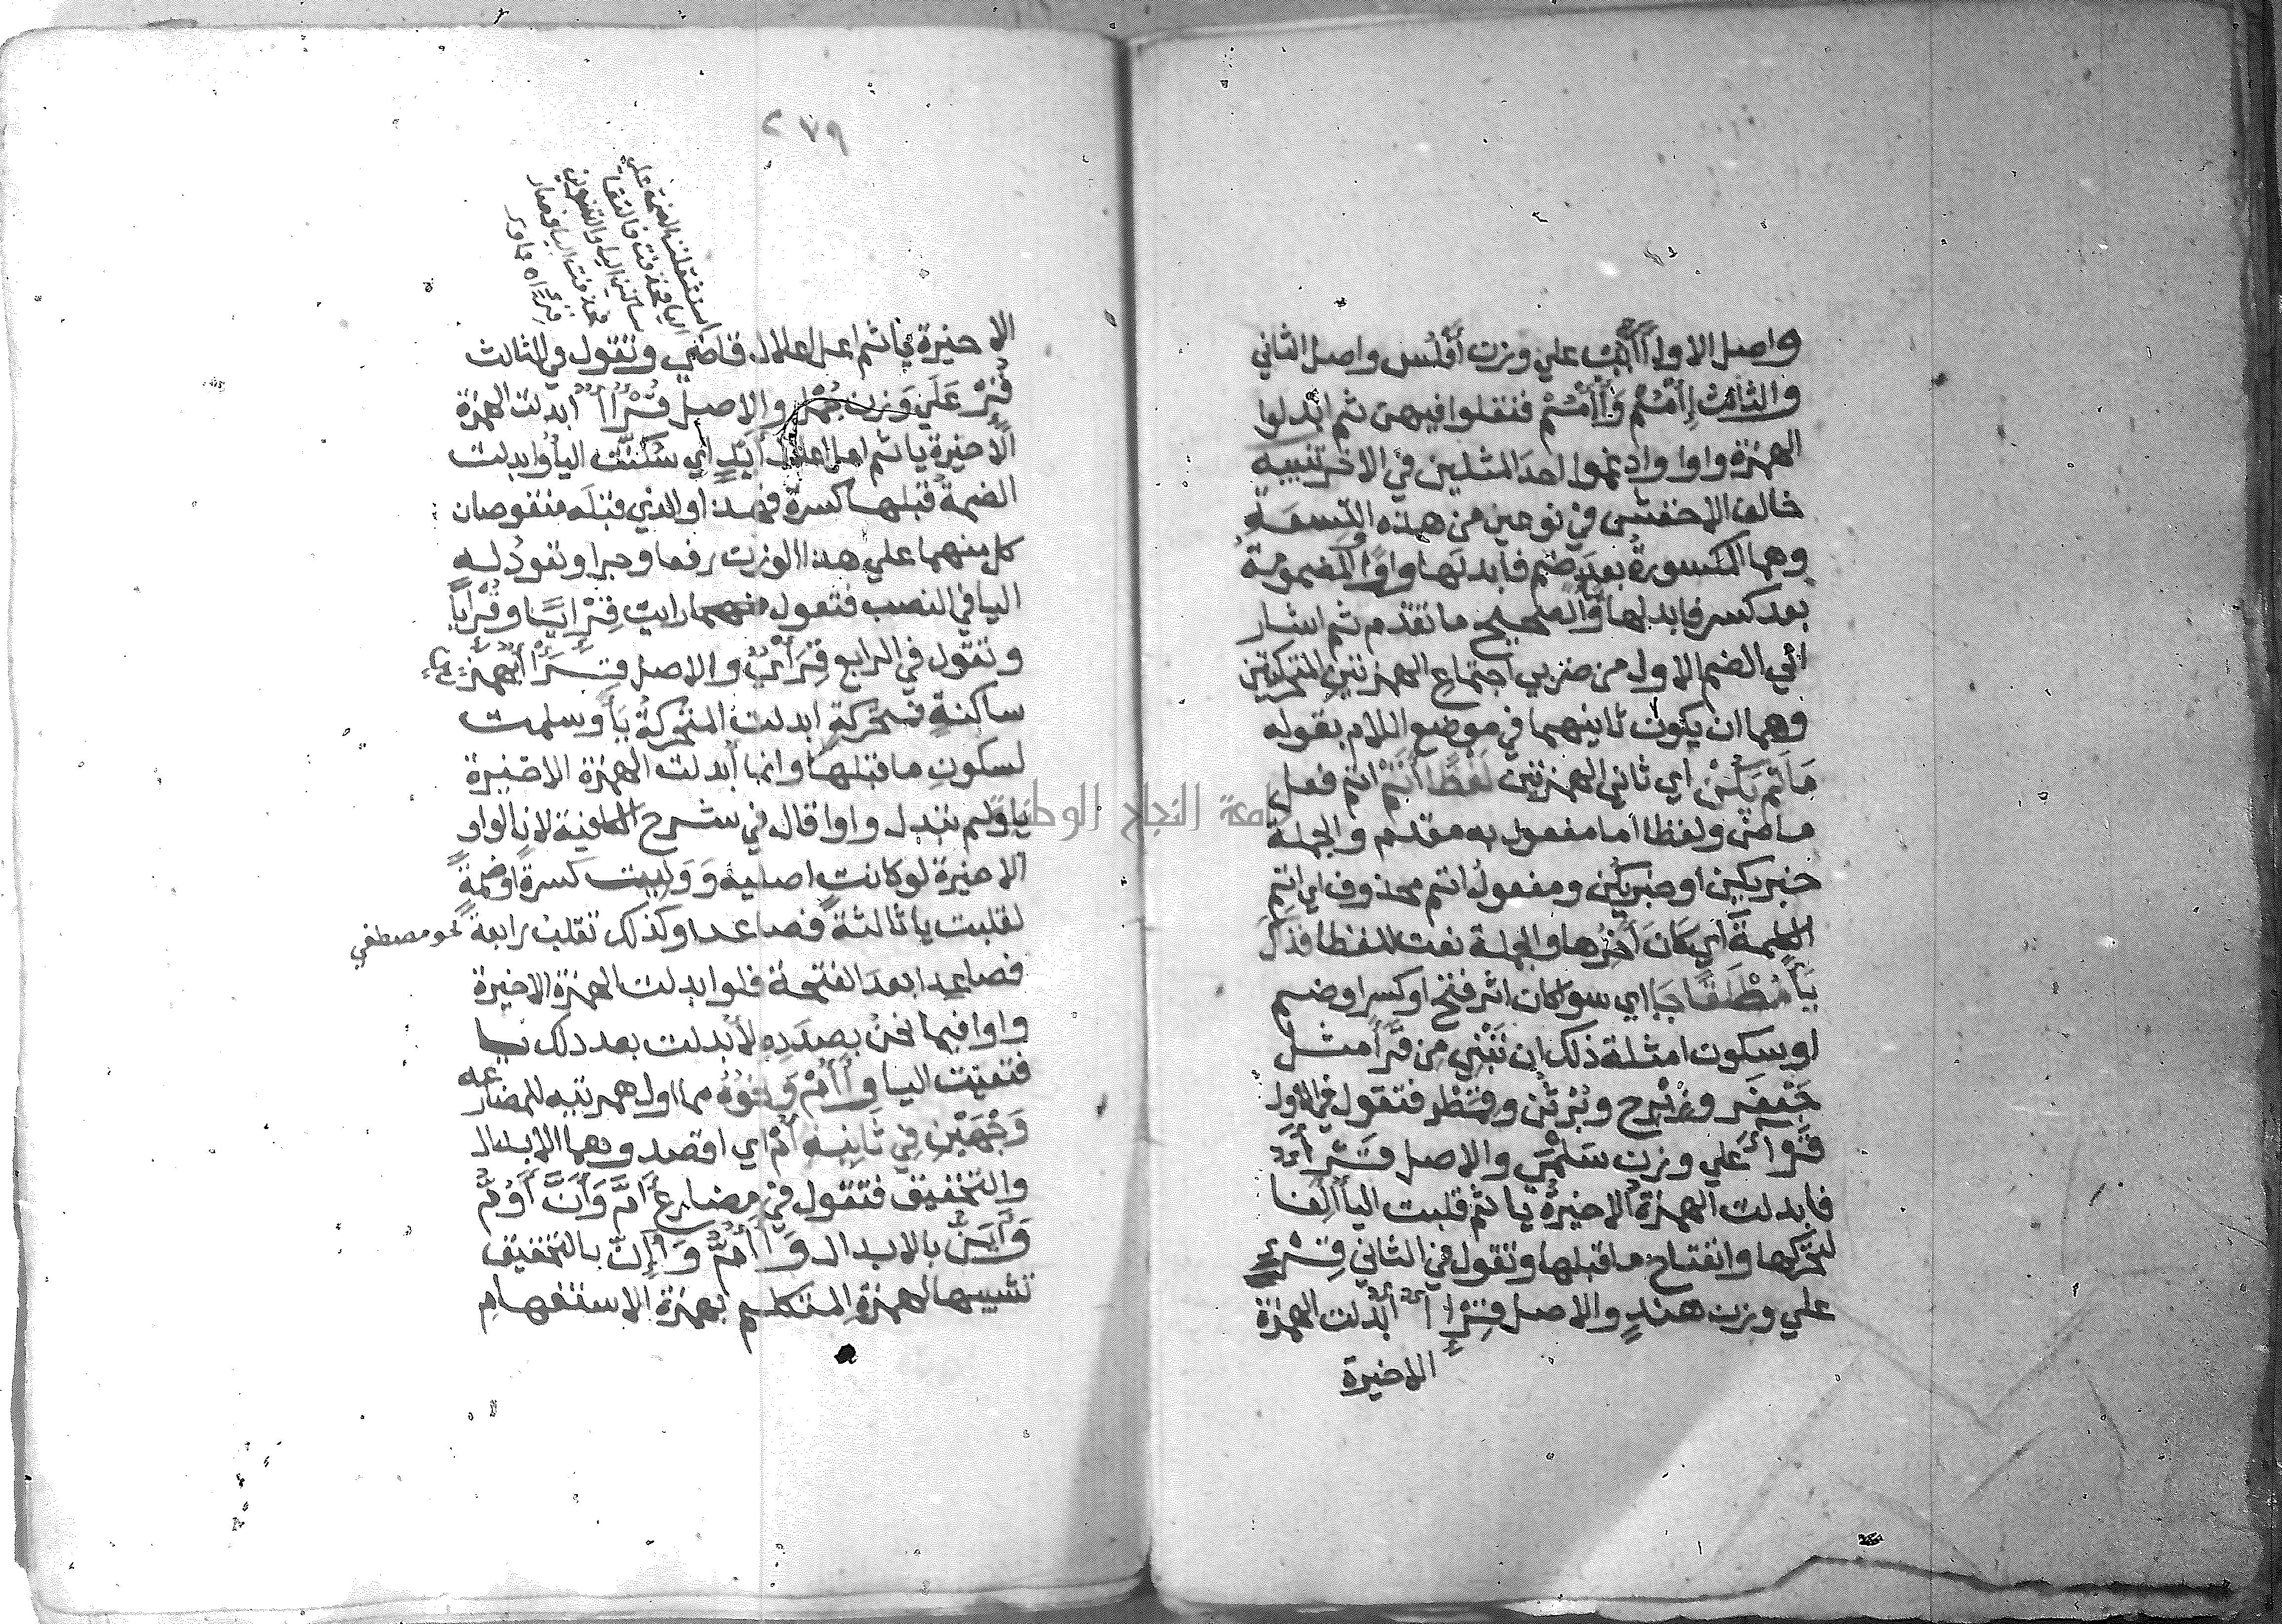 واصل الاول أَأْبُبْ علي وزن أَفْلُس واصل الثاني
والثالث إِأْمُمٌ وَأُأْمُمٌ فنقلوا فيهن ثم ابدلوا
الهمزة واوا وادغموا احد المثلين في الاخر تنبيه
خالف الاخفش في نوعين من هذه التسعة
وهما المكسورة بعد ضم فابدلها واوا والمضمومة
بعد كسر فابدلها يا والصحيح ما تقدم ثم اشار
الي الضم الاول من ضربي اجتماع الهمزتين المتحركتين
وهما ان يكون ثانيهما في موضع اللام بقوله
مَا لَمْ يَكُنْ اي ثاني الهمزتين لَفْظًا أَتَمّْ اتم فعل
ماض ولفظا اما مفعول به مقدم والجملة
خبر يكن او خبر يكن ومفعول اتم محذوف اي اتم
الكلمة اي كان آخرها والجملة نعت للفظا فذاك
يَاءً مُطْلَقًا جَا اي سوا كان اثر فتح او كسر او ضم
او سكون امثلة ذلك ان تبني من قَرَأَ مثل
جَعْفَر وزِبْرِج وبُرْثُن وقِمَطْر فتقول في الاول
قَرْأَءٍ علي وزن سَلْمَى والاصل قَرْأَأٌ
فابدلت الهمزة الاخيرة يا ثم قلبت اليا الفا
لتحركها وانفتاح ما قبلها وتقول في الثاني قِرْءٍ
علي وزن هندٍ والاصل قِرْإِئٌ ابدلت الهمزة
الاخيرة
٢٧٩
استثقلت الضمة علي
اليا فحذفت فالتقا
ساكنين اليا والتنوين
فحذفت اليا فصار
الاخيرة يا ثم اعل اعلال قاضي وتقول في الثالث
قُرْءٍ عَلَي وَزن جُمْلٍ والاصل قُرْؤُؤٌ ابدلت الهمزة
الاخيرة يا ثم اعل اعلال أَيْدٍ اي سُكِّنَت اليا وابدلت
الضمة قبلها كسرة فهذا والذي قبله منقوصان
كل منهما علي هذا الوزن رفعا وجرا وتعود له
اليا في النصب فتقول فيهما رايت قِرْئِيًا وقُرْئِيًا
وتقول في الرابع قِرَأْيٌ والاصل قِرَأْأٌ بهمزتين
ساكنة فمتحركة ابدلت المتحركة يا وسلمت
لسكون ما قبلها وانما ابدلت الهمزة الاخيرة
يا ولم تبدل واوا قال في شرح الكافية لان الواو
الاخيرة لو كانت اصلية وَوَلِيَت كسرة او ضمة
لقلبت يا ثالثة فصاعدا وكذلك تقلب رابعة
نحو مصطفي
فصاعدا بعد الفتحة فلو ابدلت الهمزة الاخيرة
واوا فيما نحن بصدده لأبدلت بعد ذلك يا
فتعينت اليا وأَأُمُّ وَنَحْوُهُ مما اول همزتيه للمضارعه
وَجْهَيْنِ فِي ثَانِيهِ أُمّ اي اقصد وهما الابدال
والتحقيق فتقول في مضارع أَمَّ وَأَنَّ أَوُمُّ
وَأَيِنُّ بالابدال وَأَأُمُّ وَأَإِنُّ بالتحقيق
تشبيها لهمزة المتكلم بهمزة الاستفهام
جامعة النجاح الوطنية